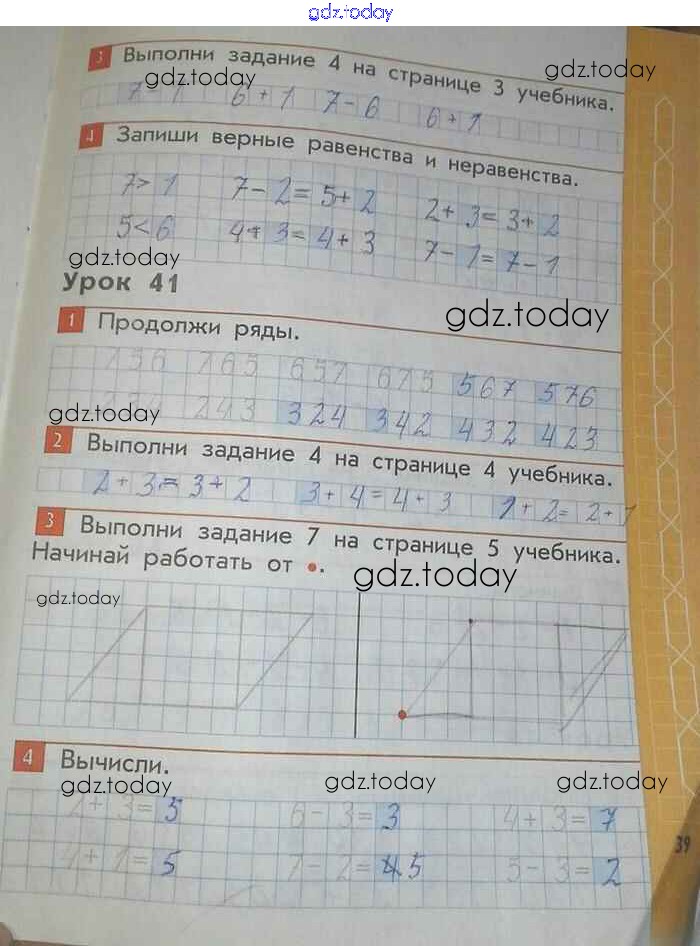 gdz.today
3 Выполни задание 4 на странице 3 учебника.
gdz.today gdz.today
7-1 6+1 7-6 6+1
4 Запиши верные равенства и неравенства.
7>1 7-2=5+2 2+3=3+2
5<6 4+3=4+3 7-1=7-1
gdz.today
Урок 41
gdz.today
1 Продолжи ряды.
756 765 657 675 567 576
243 324 342 432 423
gdz.today
2 Выполни задание 4 на странице 4 учебника.
2+3=3+2 3+4=4+3 1+2=2+1
3 Выполни задание 7 на странице 5 учебника.
Начинай работать от •.
gdz.today
gdz.today
4 Вычисли.
gdz.today gdz.today gdz.today
2+3=5 6-3=3 4+3=7
4+1=5 7-2=5 5-3=2
39